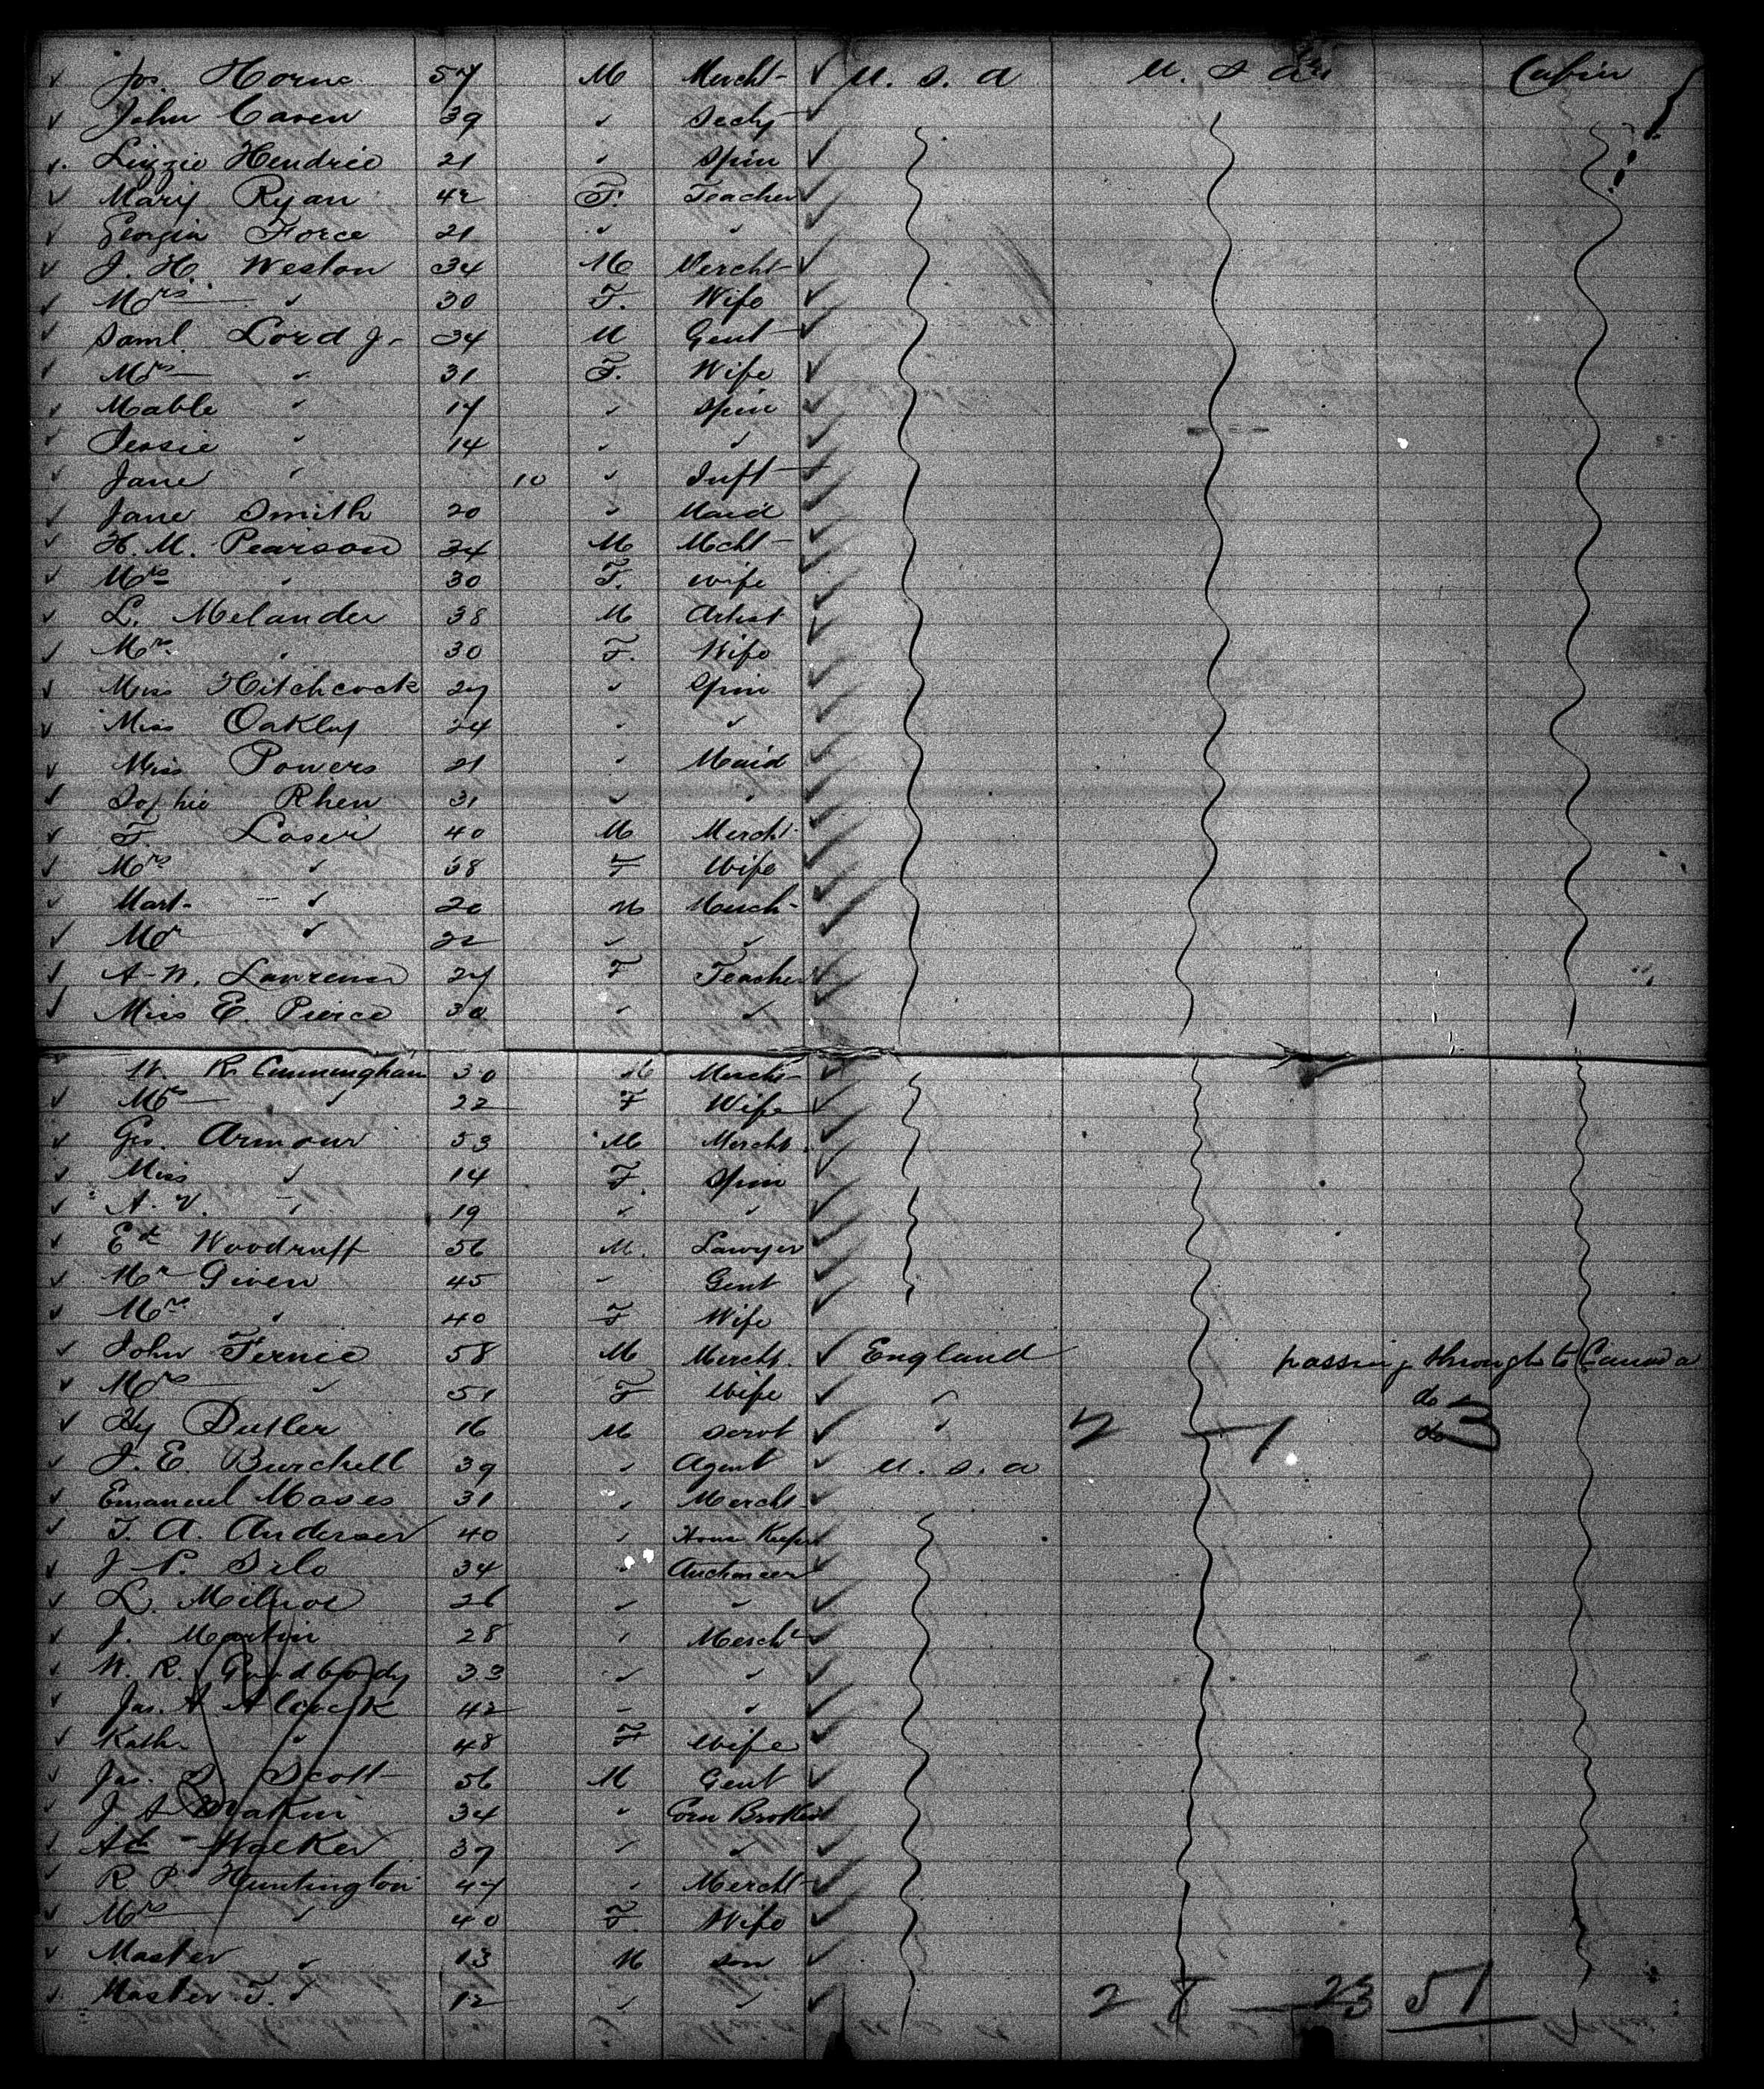 Jos. Horne 57 M Mercht U. S. A U. S. A Cabin
John Caven 39 " Secty
Lizzie Hendrie 21 " Spin
Mary Ryan 42 F. Teacher
Georgia Force 21 " "
J. H. Weston 34 M Mercht
Mrs " 30 F. Wife
Saml Lord Jr 34 M Gent
Mrs " 31 F. Wife
Mable " 17 " Spin
Jessie " 14 " "
Jane " 10 " Inft
Jane Smith 20 " Maid
H. M. Pearson 34 M Mcht
Mrs " 30 F. Wife
L. Melander 38 M Artist
Mrs " 30 F. Wife
Miss Hitchcock 27 " Spin
Miss Oakley 24 " "
Miss Powers 21 " Maid
Sophie Rhen 31 " "
F. Loser 40 M Mercht
Mrs " 38 F Wife
Mart. " 20 M Merch
Mr " 22 " "
A. W. Lawrence 27 F Teacher
Miss E. Pierce 30 " "
W. R. Cunningham 30 M Mercht
Mrs " 22 F Wife
Geo. Armour 53 M Mercht
Miss " 14 F. Spin
A. V. " 19 " "
Ed Woodruff 56 M. Lawyer
Mr Given 45 " Gent
Mrs " 40 F Wife
John Fernie 58 M Mercht. England passing through to Canada
Mrs " 51 F Wife " do
Hy Butler 16 M Servt " 2 1 do 3
J. E. Burchell 39 " Agent U. S. A
Emanuel Moses 31 " Mercht
T. A. Anderson 40 " House Keeper
J. P. Silo 34 " Auctioneer
L. Milroe 26 " "
J. Martin 28 " Mercht
W. R. Goodbody 33 " "
Jas. A Alcock 42 " "
Kath. " 48 F Wife
Jas. S Scott 56 M Gent
J S Makin 34 " Corn Broker
Walker 39 " "
R P Huntington 47 " Mercht
Mrs " 40 F. Wife
Master " 13 M Son
Master F. " 12 " " 28 23 51